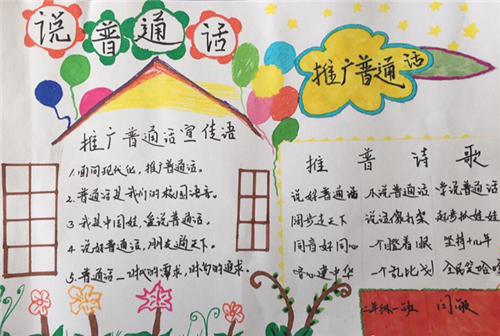 说普通话
推广普通话
推广普通话宣传语
1.面向现代化，推广普通话。
2.普通话是我们的校园语言。
3.我是中国娃，爱说普通话。
4.说好普通话，朋友遍天下。
5.普通话—时代的需求，时尚的追求。
推普诗歌
说好普通话 不说普通话 学说普通话
同步走天下 说话像打架 起步从娃娃
同音好同心 一个瞪着眼 坚持十几年
心连中华 一个乱比划 全民笑哈哈
二年级一班 闫敏